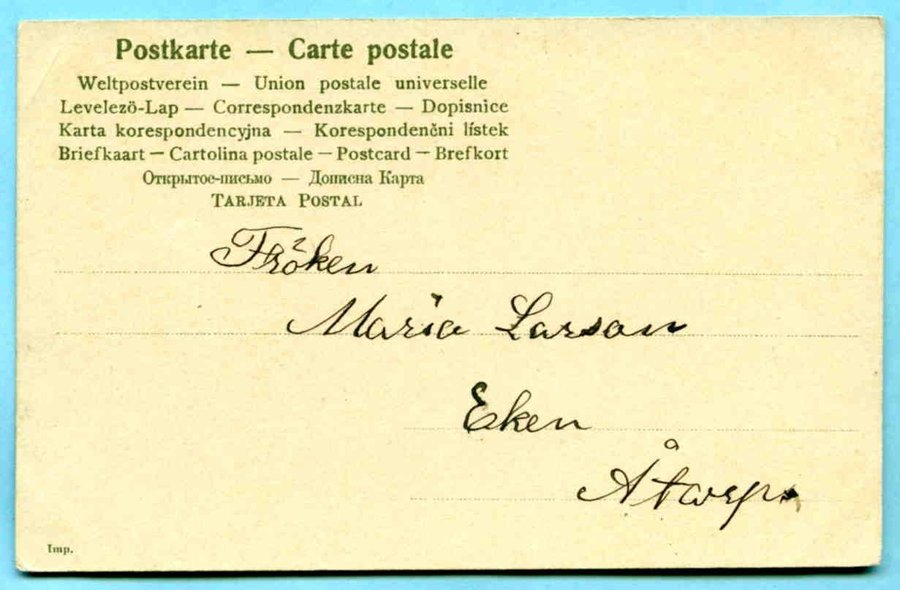 Postkarte — Carte postale
Weltpostverein — Union postale universelle
Levelező-Lap — Correspondenzkarte — Dopisnice
Karta korespondencyjna — Korespondenčni lístek
Briefkaart — Cartolina postale — Postcard — Brefkort
Открытое-письмо — Дописна Карта
TARJETA POSTAL
Fröken
Maria Larson
Eken
Åtarp
Imp.